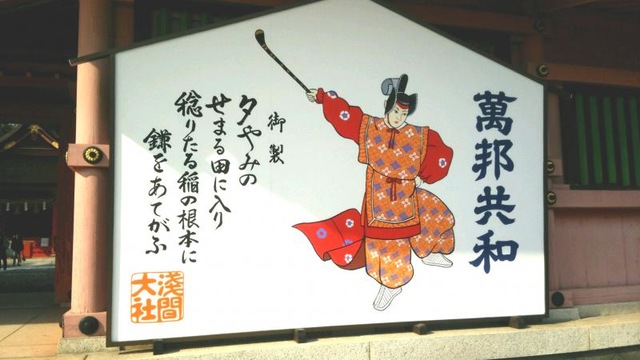 萬邦共和
御製
夕やみの
せまる田に入り
稔りたる稲の根本に
鎌をあてがふ
淺間
大社